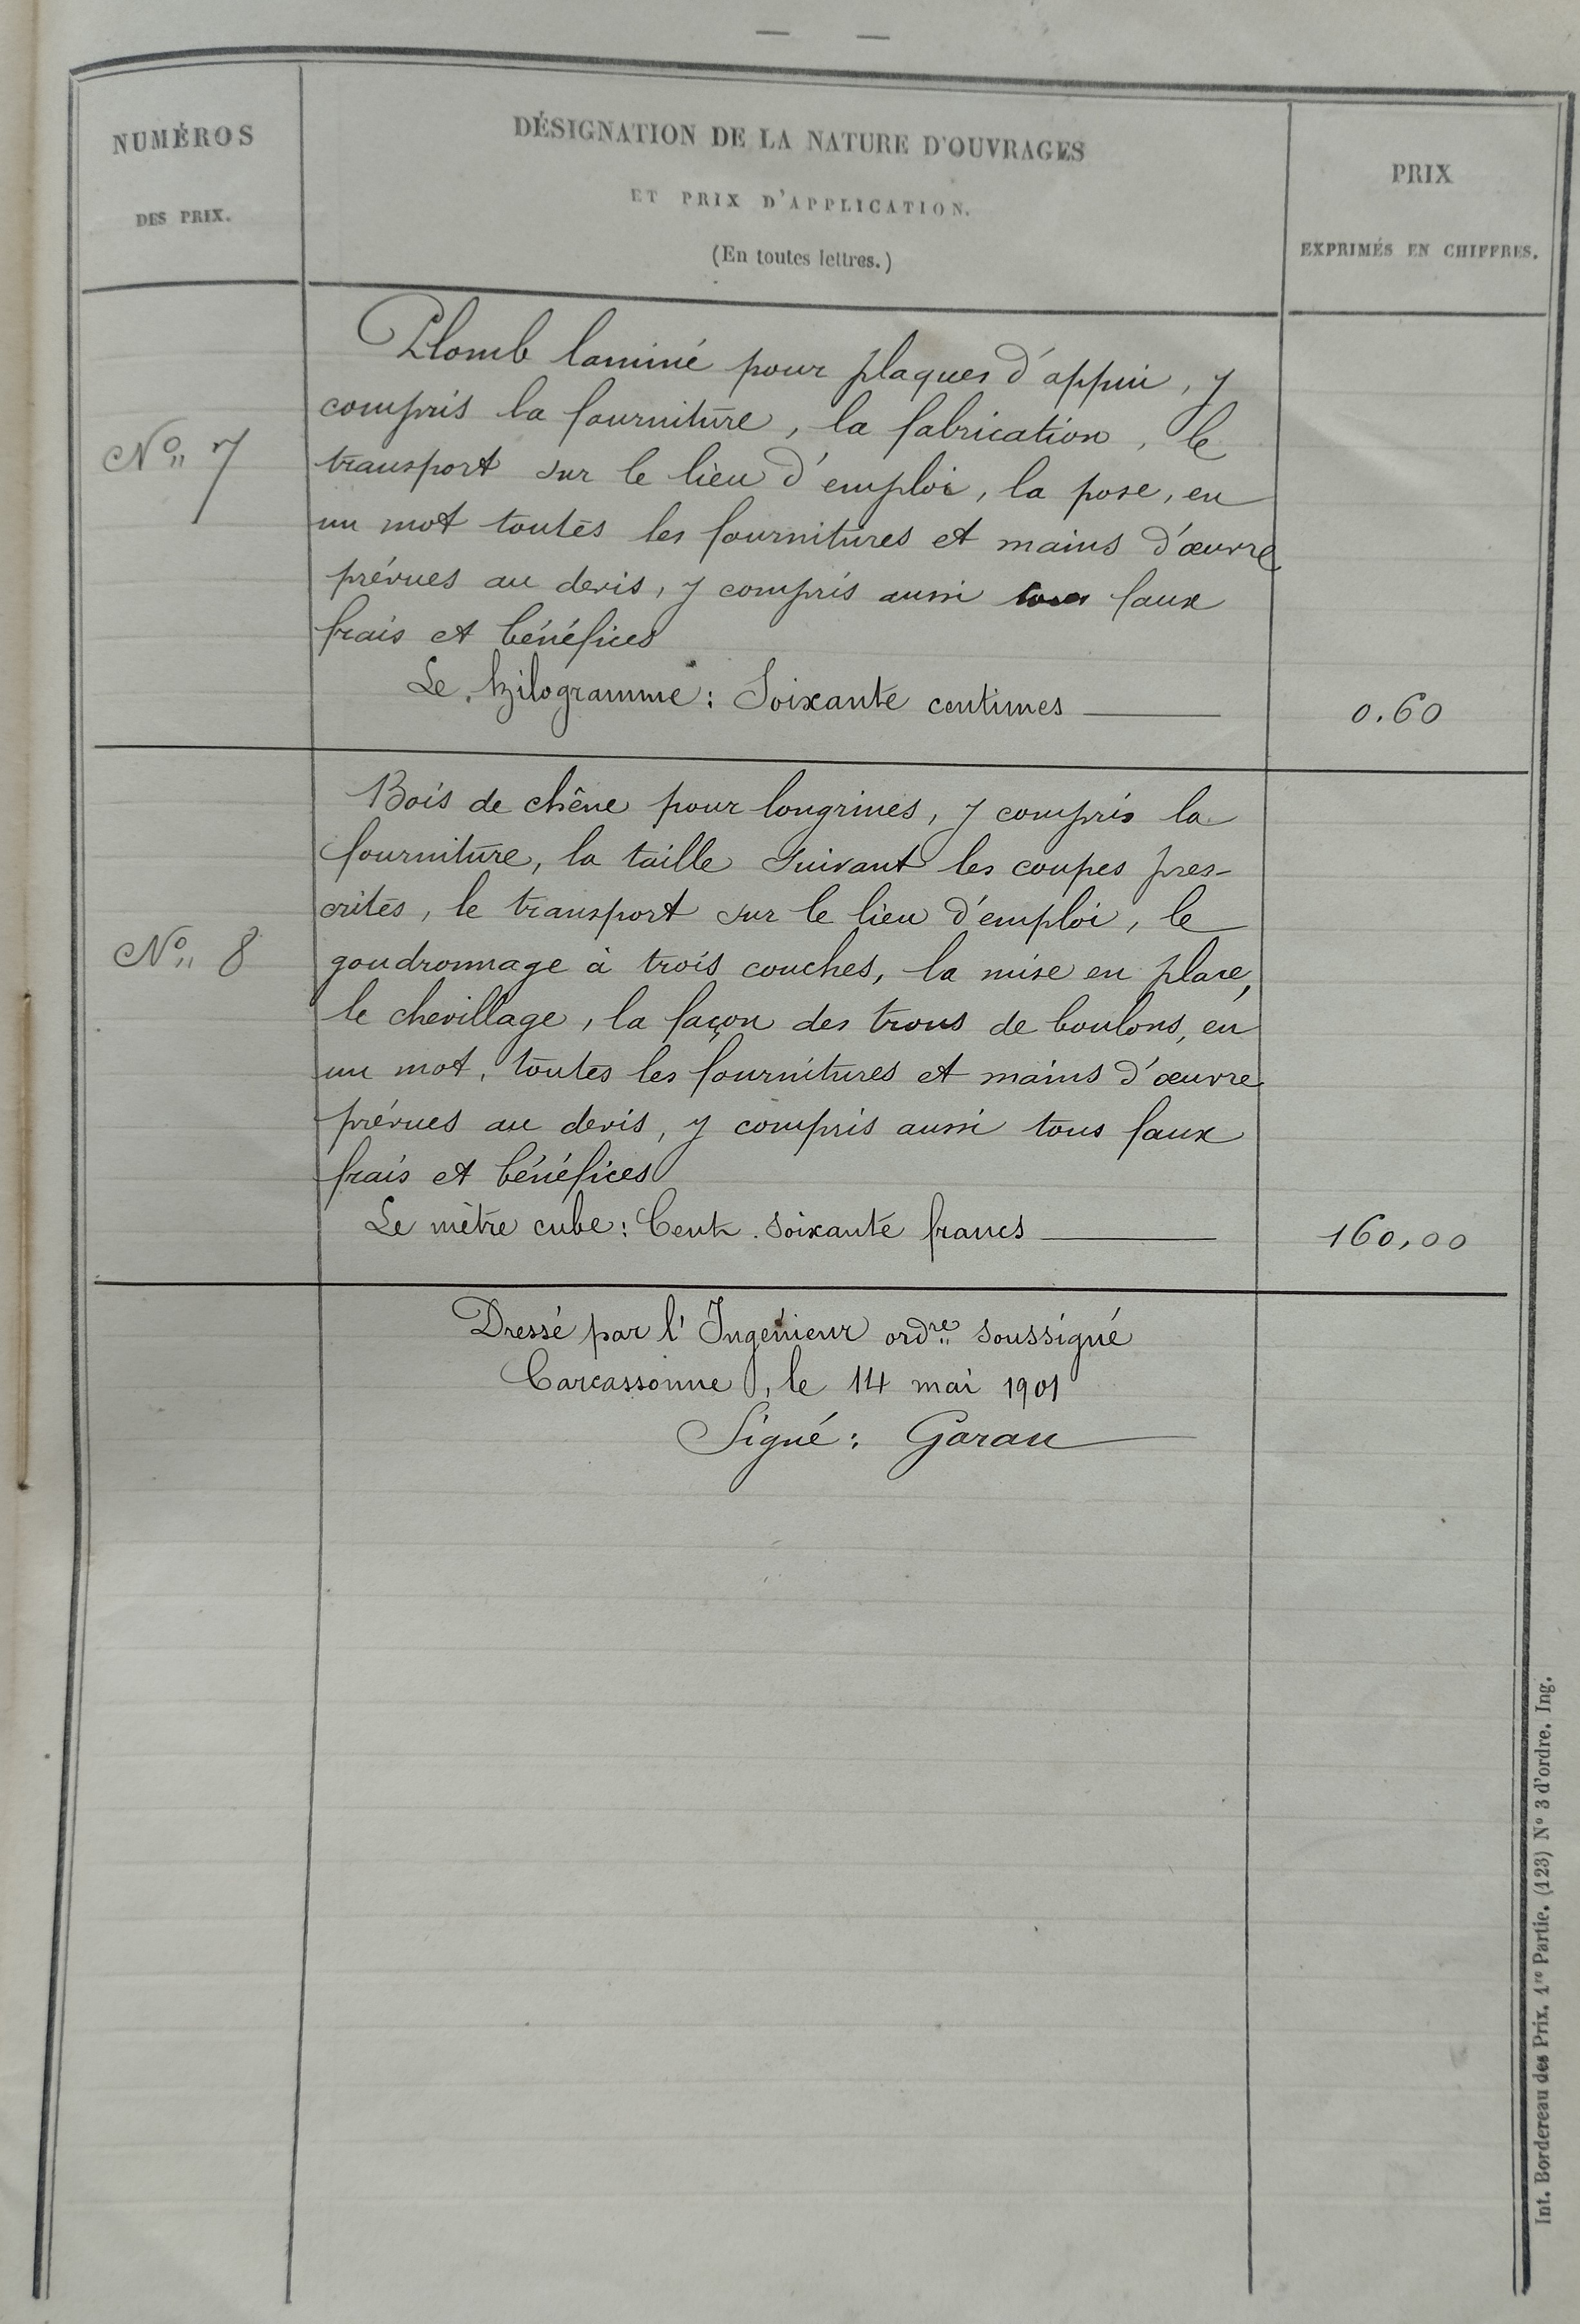 NUMÉROS
DES PRIX.
DÉSIGNATION DE LA NATURE D'OUVRAGES
ET PRIX D'APPLICATION.
(En toutes lettres.)
PRIX
EXPRIMÉS EN CHIFFRES.
N° 7
Plomb laminé pour plaques d'appui, y
compris la fourniture, la fabrication, le
transport sur le lieu d'emploi, la pose, en
un mot toutes les fournitures et mains d'œuvre
prévues au devis, y compris aussi tous faux
frais et bénéfices
Le kilogramme : Soixante centimes
0.60
N° 8
Bois de chêne pour longrines, y compris la
fourniture, la taille suivant les coupes pres-
crites, le transport sur le lieu d'emploi, le
goudronnage à trois couches, la mise en place,
le chevillage, la façon des trous de boulons, en
un mot, toutes les fournitures et mains d'œuvre
prévues au devis, y compris aussi tous faux
frais et bénéfices
Le mètre cube : Cent soixante francs
160,00
Dressé par l'Ingénieur ordre soussigné
Carcassonne, le 14 mai 1901
Signé : Garau
Int. Bordereau des Prix. 1re Partie. (123) N° 3 d'ordre. Ing.